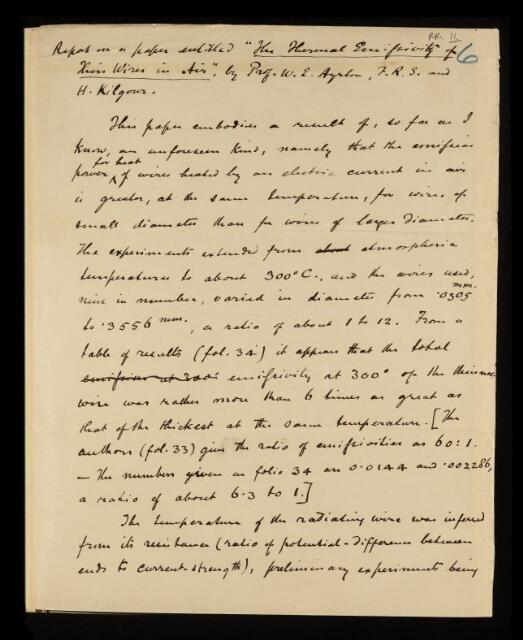 RR. 11
6
Report on a paper entitled "The Thermal Emissivity of
Thin Wires in Air", by Prof. W. E. Ayrton, F.R.S. and
H. Kilgour.
This paper embodies a result of, so far as I
know, an unforeseen kind, namely that the emissive
for heat
power ^ of wires heated by an electric current in air
is greater, at the same temperature, for wires of
small diameter than for wires of larger diameter.
The experiments extended from about atmospheric
temperatures to about 300°C., and the wires used,
nine in number, varied in diameter from .0305 mm.
to .3556 mm., a ratio of about 1 to 12. From a
table of results (fol. 34) it appears that the total
emissivity at 300° of the thinnest
wire was rather more than 6 times as great as
that of the thickest at the same temperature. [The
authors (fol. 33) give the ratio of emissivities as 60:1.
– The numbers given on folio 34 are 0.0144 and .002286,
a ratio of about 6.3 to 1.]
The temperature of the radiating wire was infered
from its resistance (ratio of potential-difference between
ends to current-strength), preliminary experiments being